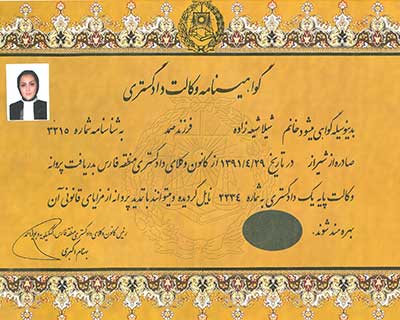 گواهینامه وکالت دادگستری
بدینوسیله گواهی میشود خانم شیلا شیعه زاده فرزند صمد به شناسنامه شماره ۳۲۱۵
صادره از شیراز در تاریخ ۱۳۹۱/۴/۲۹ از کانون وکلای دادگستری منطقه فارس بدریافت پروانه
وکالت پایه یک دادگستری به شماره ۲۲۳۴ نایل گردیده و میتوانند با تمدید پروانه از مزایای قانونی آن
بهره مند شوند.
رئیس کانون وکلای دادگستری منطقه فارس، کهگیلویه و بویراحمد